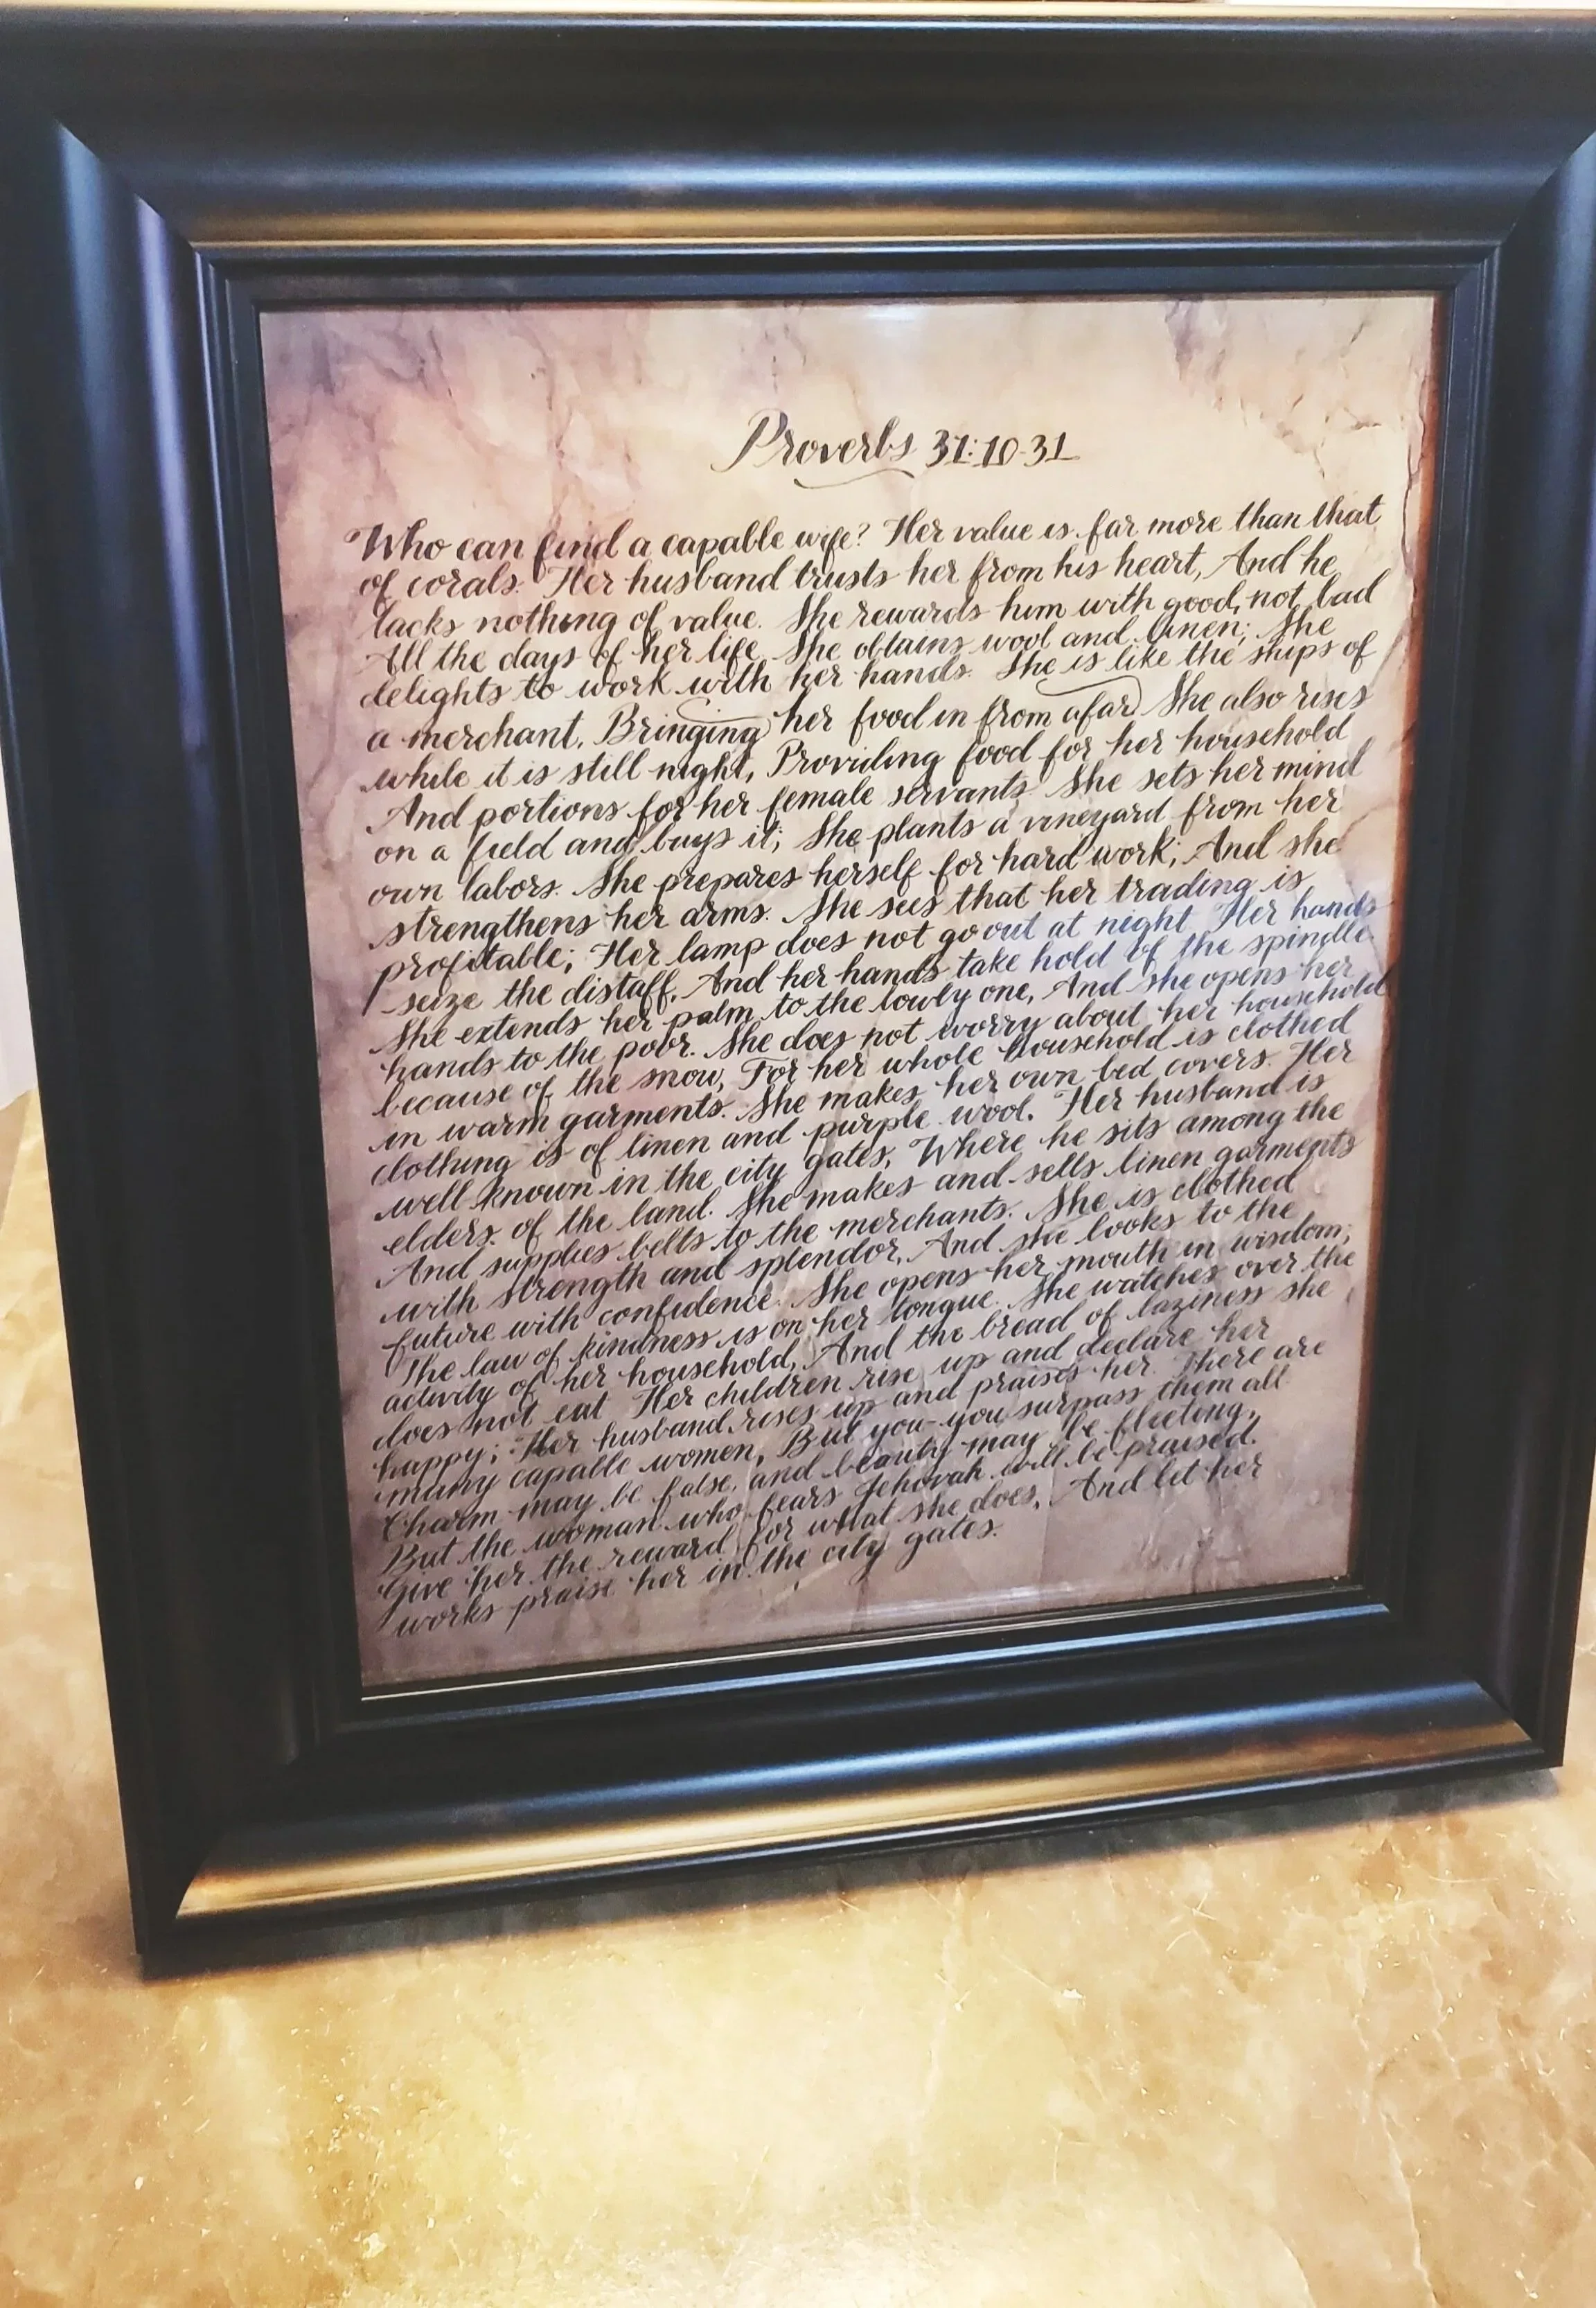 Proverbs 31:10-31
Who can find a capable wife? Her value is far more than that
of corals. Her husband trusts her from his heart, And he
lacks nothing of value. She rewards him with good, not bad
All the days of her life. She obtains wool and linen; She
delights to work with her hands. She is like the ships of
a merchant, Bringing her food in from afar. She also rises
while it is still night, Providing food for her household
And portions for her female servants. She sets her mind
on a field and buys it; She plants a vineyard from her
own labors. She prepares herself for hard work; And she
strengthens her arms. She sees that her trading is
profitable; Her lamp does not go out at night. Her hands
seize the distaff, And her hands take hold of the spindle.
She extends her palm to the lowly one, And she opens her
hands to the poor. She does not worry about her household
because of the snow, For her whole household is clothed
in warm garments. She makes her own bed covers. Her
clothing is of linen and purple wool. Her husband is
well known in the city gates, Where he sits among the
elders of the land. She makes and sells linen garments
And supplies belts to the merchants. She is clothed
with strength and splendor, And she looks to the
future with confidence. She opens her mouth in wisdom;
The law of kindness is on her tongue. She watches over the
activity of her household, And the bread of laziness she
does not eat. Her children rise up and declare her
happy; Her husband rises up and praises her. There are
many capable women, But you-you surpass them all
Charm may be false, and beauty may be fleeting,
But the woman who fears Jehovah will be praised.
Give her the reward for what she does, And let her
works praise her in the city gates.